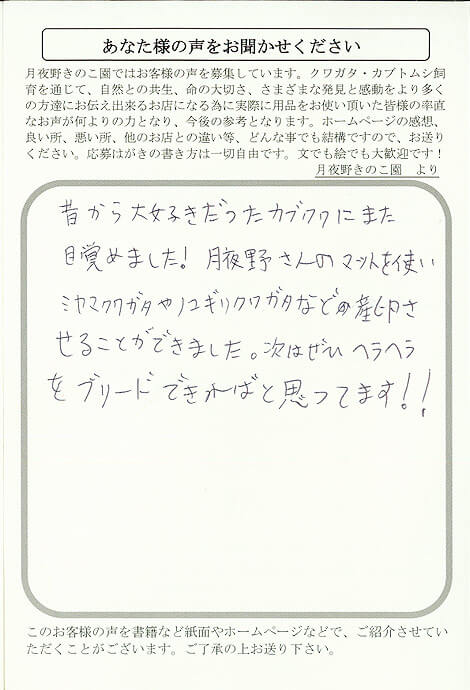 あなた様の声をお聞かせください
月夜野きのこ園ではお客様の声を募集しています。クワガタ・カブトムシ飼
育を通じて、自然との共生、命の大切さ、さまざまな発見と感動をより多く
の方達にお伝え出来るお店になる為に実際に用品をお使い頂いた皆様の率直
なお声が何よりの力となり、今後の参考となります。ホームページの感想、
良い所、悪い所、他のお店との違い等、どんな事でも結構ですので、お送り
ください。応募はがきの書き方は一切自由です。文でも絵でも大歓迎です！
月夜野きのこ園　より
昔から大好きだったカブクワにまた
目覚めました！月夜野さんのマットを使い
ミヤマクワガタやノコギリクワガタなどの産卵さ
せることができました。次はぜひヘラヘラ
をブリードできればと思ってます！！
このお客様の声を書籍など紙面やホームページなどで、ご紹介させてい
ただくことがございます。ご了承の上お送り下さい。